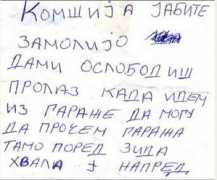 Комшија јабите
замолијо
дами ослободиш
пролаз када идем
из гараже да могу
да прочем гаража
тамо поред зида
хвала у напред